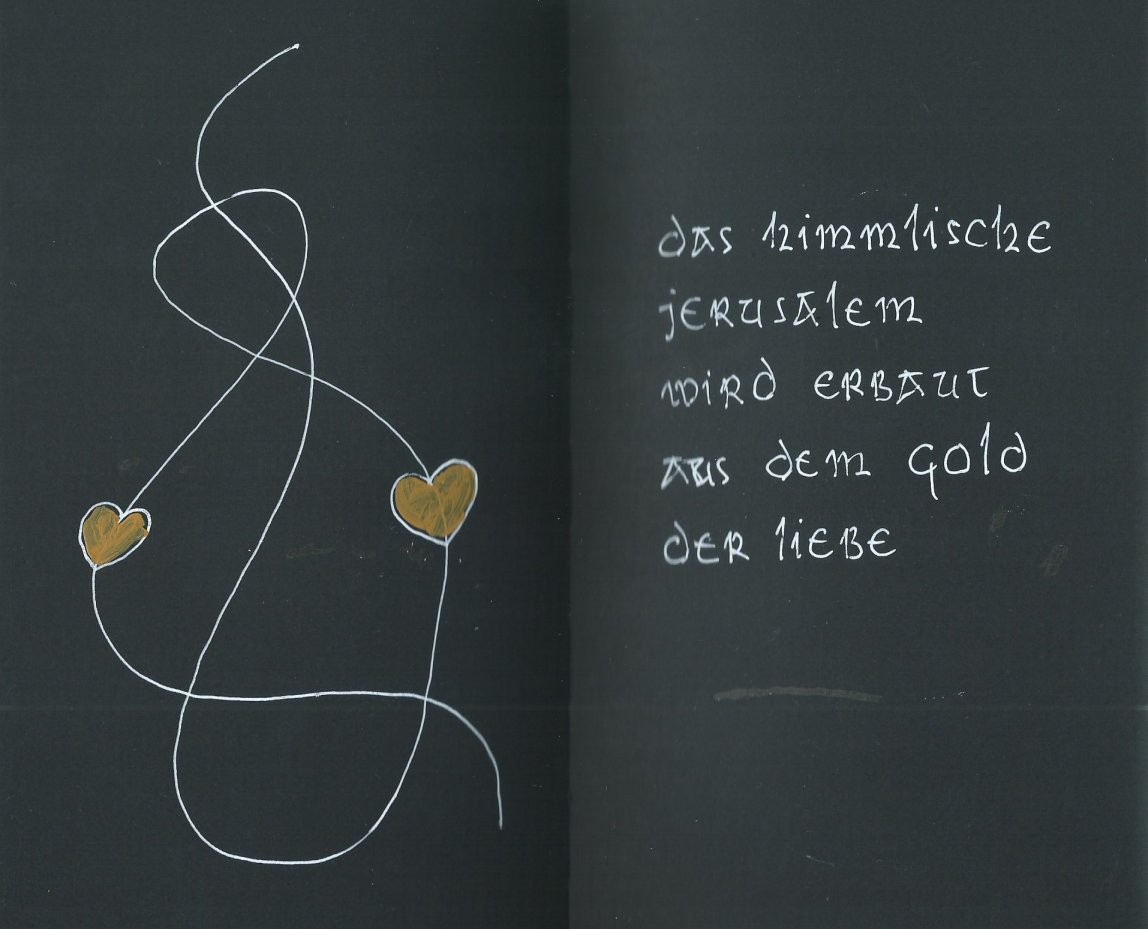 das himmlische
jerusalem
wird erbaut
aus dem gold
der liebe